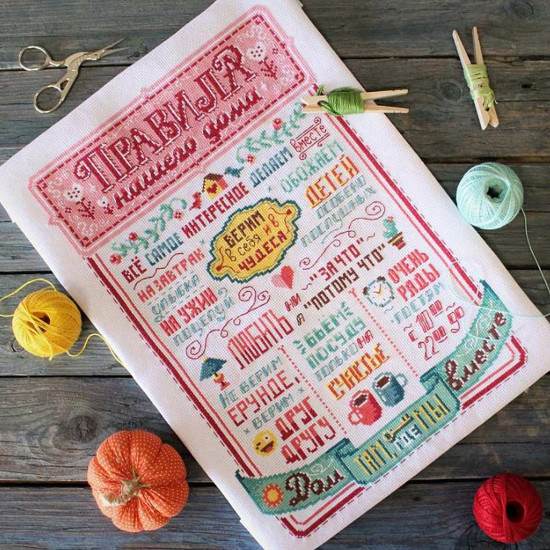 ПРАВИЛА
нашего дома
ВСЁ САМОЕ ИНТЕРЕСНОЕ ДЕЛАЕМ ВМЕСТЕ
ВЕРИМ
В СЕБЯ И В
ЧУДЕСА
НА ЗАВТРАК
УЛЫБКИ
НА УЖИН
ПОЦЕЛУИ
ОБОЖАЕМ
ДЕТЕЙ
ОСОБЕННО
ПОСЛУШНЫХ
ЛЮБИТЬ
НИ "ЗА ЧТО"
А "ПОТОМУ ЧТО"
НЕ ВЕРИМ
ЕРУНДЕ,
ВЕРИМ
ДРУГ
ДРУГУ
БЬЕМ
ПОСУДУ
ТОЛЬКО НА
СЧАСТЬЕ
ОЧЕНЬ
РАДЫ
ГОСТЯМ
С 10.00
22.00
Дом ТАМ, ГДЕ МЫ вместе